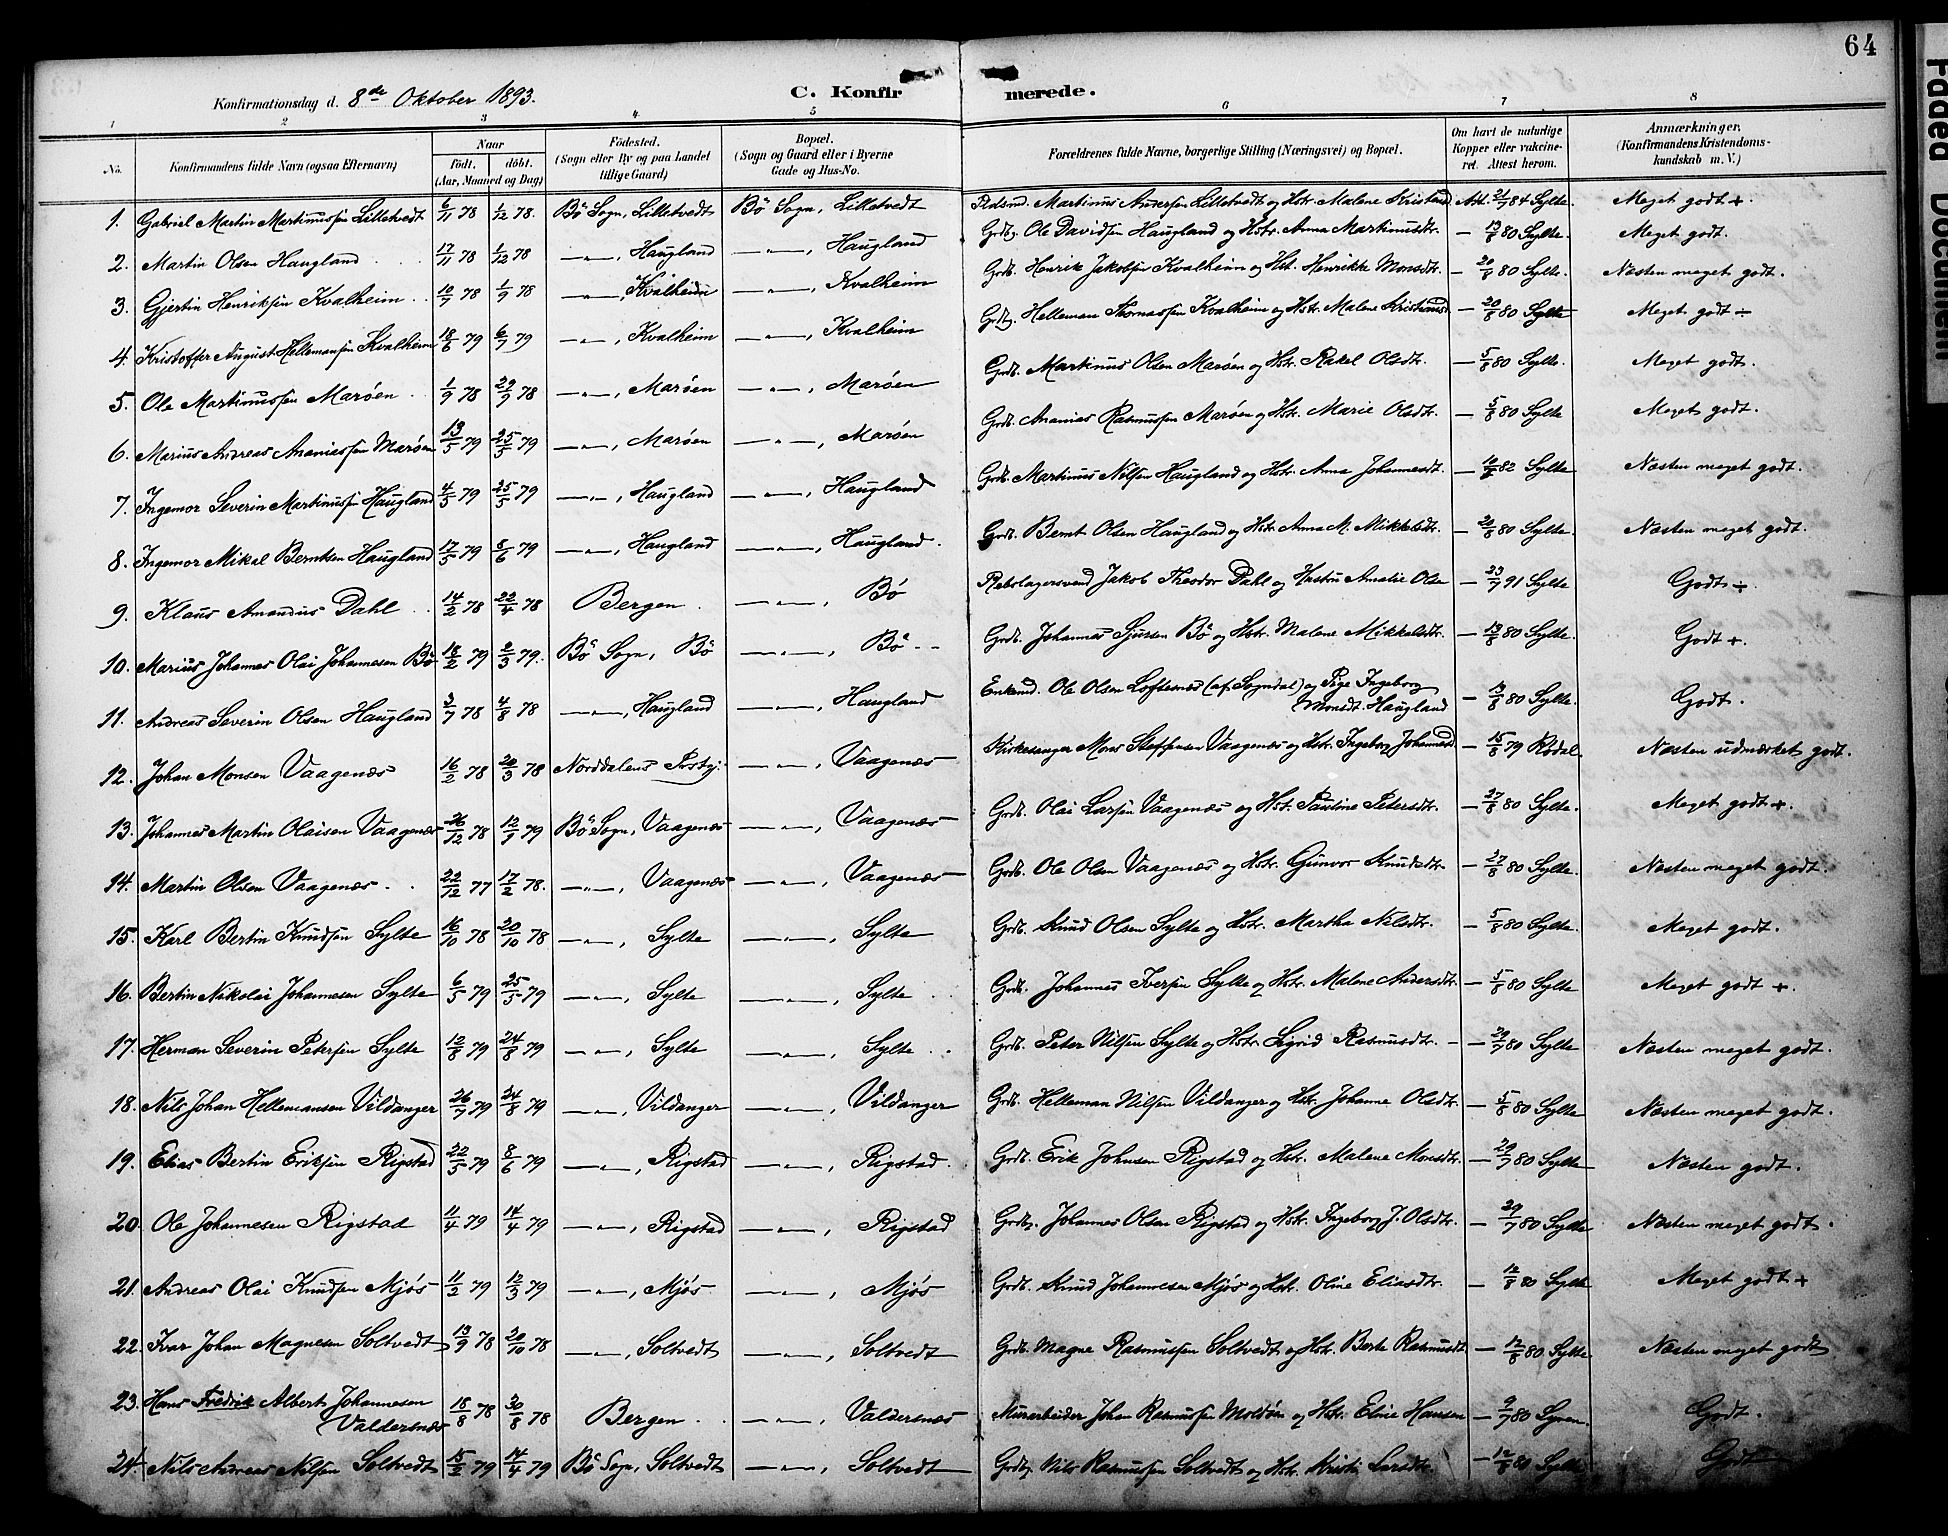 64
Konfirmationsdag d. 8de Oktober 1893.
C. Konfir merede.
1 2 3 4 5 6 7 8
No. Konfirmandens fulde Navn (ogsaa Efternavn) Naar født. døbt. (Aar, Maaned og Dag) Fødested. (Sogn eller By og paa Landet tillige Gaard) Bopæl. (Sogn og Gaard eller i Byerne Gade og Hus-No. Forældrenes fulde Navne, borgerlige Stilling (Næringsvei) og Bopæl. Om havt de naturlige Kopper eller vakcineret. Attest herom. Anmærkninger. (Konfirmandens Kristendomskundskab m. V.)
1. Gabriel Martin Martinussen Lilletvedt 6/11 78 1/12 78. Bö Sogn, Lilletvedt Bö Sogn, Lilletvedt Martinus Andersen Lilletvedt og Hstr. Malene Kristensd Att. 21/7 84 Sylte. Meget godt +.
2. Martin Olsen Haugland 17/11 78 1/12 78 —„—, Haugland —„—, Haugland Grdbg. Ole Davidsen Haugland og Hstr. Anna Martinusdtr. — 13/8 80 Sylte. Meget godt.
3. Gjertin Henriksen Kvalheim 10/9 78 1/9 78 —„—, Kvalheim —„—, Kvalheim Grdb. Henrik Jakobsen Kvalheim og Hst. Henrikke Monsdtr. — 20/8 80 Sylte. Næsten meget godt.
4. Kristoffer August Hellemansen Kvalheim 18/6 79 6/7 79 —„—, Kvalheim —„—, Kvalheim Grdbg. Helleman Thomassen Kvalheim og Hstr. Malene Kristensd — 20/8 80 Sylte Meget godt ÷
5. Ole Martinussen Marøen 1/9 78 29/9 78 —„—, Marøen —„—, Marøen Grdb. Martinus Olsen Marøen og Hstr. Rakel Olsdtr. — 5/8 80 Sylte. Meget godt.
6. Marius Andreas Ananiassen Marøen 13/5 79 25/5 79 —„—, Marøen —„—, Marøen Grdb. Ananias Rasmussen Marøen og Hstr. Marie Olsdtr. — 5/8 80 Sylte Meget godt.
7. Ingemor Severin Martinussen Haugland 4/5 79 25/5 79 —„—, Haugland —„—, Haugland Grdb. Martinus Nilsen Haugland og Hstr. Anna Johannesdt. — 82 Sylte Næsten meget godt.
8. Ingemor Mikal Berntsen Haugland 17/5 79 8/6 79 —„—, Haugland —„—, Haugland. Grdb. Bernt Olsen Haugland og Hstr. Anna M. Mikkelsdtr. — 20/8 80 Sylte. Næsten meget godt.
9. Klaus Amandus Dahl 14/2 78 22/4 78 Bergen. —„—, Bö Rebslagersvend Jakob Theodor Dahl og Hustru Amalie Olse — 23/7 91 Sylte Godt ÷.
10. Marius Johannes Olai Johannesen Bö 18/2 79 2/3 79. Bö Sogn, Bö —„—, Bö Grdb. Johannes Sjursen Bö og Hstr. Malene Mikkelsdtr. — 13/8 80 Sylte. Godt +.
11. Andreas Severin Olsen Haugland 3/7 78 4/8 78 —„—, Haugland —„—, Haugland Enkemd. Ole Olsen Loftesnes (af Sogndal) og Pige Ingeborg Monsdt. Haugland — 13/8 80 Sylte. Godt.
12. Johan Monsen Vaagenæs 16/2 78 20/3 78 Norddalens Prstgj. —„—, Vaagenæs Kirkesanger Mons Steffensen Vaagenæs og Hstr. Ingeborg Johannesd — 15/8 79 Rødal Næsten udmærket godt.
13. Johannes Martin Olaisen Vaagenæs 26/12 78 12/1 79 Bö Sogn, Vaagenæs —„—, Vaagenæs Grdb. Olai Larsen Vaagenæs og Hst. Pauline Petersdtr. — 27/8 80 Sylte. Meget godt +.
14. Martin Olsen Vaagenæs 22/12 77 17/2 78. —„—, Vaagenæs —„—, Vaagenæs Grdb. Ole Olsen Vaagenæs og Hstr. Gunvor Knudsdtr — 27/8 80 Sylte. Næsten meget godt.
15. Karl Bertin Knudsen Sylte 16/10 78 20/10 78 —„—, Sylte —„—, Sylte Grdb. Knud Olsen Sylte og Hstr. Martha Nilsdtr. — 5/8 80 Sylte. Meget godt.
16. Bertin Nikolai Johannesen Sylte 6/5 79 25/5 79 —„—, Sylte —„—, Sylte Grdb. Johannes Iversen Sylte og Hstr. Malene Andersdtr — 5/8 80 Sylte Meget godt +.
17. Herman Severin Petersen Sylte 12/8 79 24/8 79 —„—, Sylte —„—, Sylte Grdb. Peter Nilsen Sylte og Hstr. Sigrid Rasmusdtr. — 29/7 80 Sylte Næsten meget godt.
18. Nils Johan Hellemansen Vildanger 26/7 79 24/8 79 —„—, Vildanger —„—, Vildanger Grdb. Helleman Nilsen Vildanger og Hstr. Johanne Olsdtr. — 5/8 80 Sylte. Næsten meget godt.
19. Elias Bertin Eriksen Rigstad 22/5 79 8/6 79 —„—, Rigstad —„—, Rigstad. Grdb. Erik Johnsen Rigstad og Hstr. Malene Monsdtr. — 29/7 80 Sylte Næsten godt.
20. Ole Johannesen Rigstad 11/4 79 14/4 79 —„—, Rigstad —„—, Rigstad Grdbg. Johannes Olsen Rigstad og Hstr. Ingeborg J. Olsdtr. — 29/7 80 Sylte Næsten meget godt.
21. Andreas Olai Knudsen Mjös 11/2 79 12/3 79 —„—, Mjös —„—, Mjös Grdb. Knud Johannesen Mjös og Hstr. Oline Eliasdtr. — 12/8 80 Sylte Meget godt +
22. Ivar Johan Magnesen Soltvedt 13/9 78 20/10 78 —„—, Soltvedt —„—, Soltvedt Grdb. Magne Rasmussen Soltvedt og Hstr. Berte Rasmusdt — 12/8 80 Sylte Næsten meget godt
23. Hans Fredrik Albert Johannesen Valdersnæs 18/8 78 30/8 78 Bergen —„—, Valdersnæs Murarbeider Johan Rasmussen og Hstr. Eline Hansen — 9/7 80 Godt.
24. Nils Andreas Nilsen Soltvedt 15/2 79 14/4 79 Bö Sogn, Soltvedt —„—, Soltvedt Grdbg. Nils Rasmussen Soltvedt og Hstr. Kristi Larsdtr. — 12/8 80 Sylte Godt
Faded Document